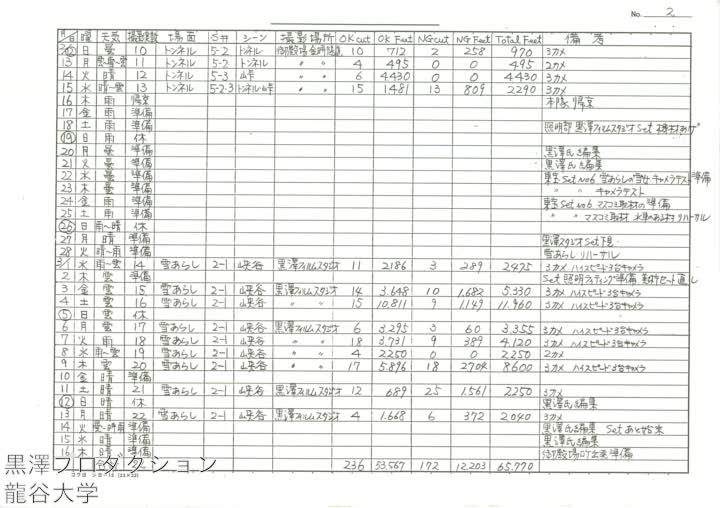 No. 2
月日 曜 天気 撮影実数 場面 S# シーン 撮影場所 OK cut OK Feet NG cut NG Feet Total Feet 備考
日 曇 10 トンネル 5-2 トンネル 10 712 2 258 970 3カメ
13 月 11 トンネル 5-2 トンネル 〃 〃 4 495 0 0 495 2カメ
14 火 晴 12 トンネル 5-3 山峠 〃 〃 6 4430 0 0 4430 3カメ
15 水 晴〜雲 13 トンネル 5-2-3 トンネル・山峠 〃 〃 15 1481 13 809 2290 3カメ
16 木 雨 帰京 本隊 帰京
17 金 雨 準備
18 土 雨 準備 照明部 黒澤フィルムスタジオ Set
19 日 雨 休
20 月 曇 準備 黒澤氏 編集
21 火 曇 準備 黒澤氏 編集
22 水 曇 準備 東宝 Set No6 雪あらしの雪女 キャメラテスト 準備
23 木 曇 準備 〃 〃 キャメラテスト
24 金 雨 準備 東宝 Set No6 マスコミ取材の準備
25 土 雨 準備 〃 〃 マスコミ取材 水車のある村 リハーサル
26 日 雨〜晴 休
27 月 晴 準備 黒澤スタジオ Set下見
28 火 晴〜雨 準備 雪あらし リハーサル
3/1 水 雨〜雲 14 雪あらし 2-1 峡谷 黒澤フィルムスタジオ 11 2186 3 289 2475 3カメ ハイスピード 3台キャメラ
2 木 雲 準備 Set 照明ライティング準備
3 金 雲 15 雪あらし 2-1 峡谷 黒澤フィルムスタジオ 14 3.648 10 1.682 5.330 3カメ ハイスピード 3台キャメラ
4 土 雲 16 雪あらし 2-1 峡谷 〃 〃 15 10.811 9 1.149 11.960 3カメ ハイスピード 3台キャメラ
5 日 雲 休
6 月 雲 17 雪あらし 2-1 峡谷 黒澤フィルムスタジオ 6 3.295 3 60 3.355 3カメ ハイスピード 3台キャメラ
7 火 雨 18 雪あらし 2-1 峡谷 〃 〃 18 3.731 9 389 4.120 3カメ ハイスピード 3台キャメラ
8 水 雨〜雲 19 雪あらし 2-1 峡谷 〃 〃 4 2250 0 0 2250 2カメ
9 木 雲 20 雪あらし 2-1 峡谷 〃 〃 17 5.896 18 2704 8600 3カメ ハイスピード 3台キャメラ
10 金 晴 準備
11 土 晴 21 雪あらし 2-1 峡谷 黒澤フィルムスタジオ 12 689 25 1.561 2250 3カメ
12 日 晴 休 黒澤氏 編集
13 月 晴 22 雪あらし 2-1 峡谷 黒澤フィルムスタジオ 4 1.668 6 372 2.040 3カメ
14 火 準備 黒澤氏 編集 Set
15 水 晴 準備 黒澤氏 編集
16 木 晴 準備 御殿場 準備
236 53.567 172 12.203 65.770
黒澤プロダクション
龍谷大学